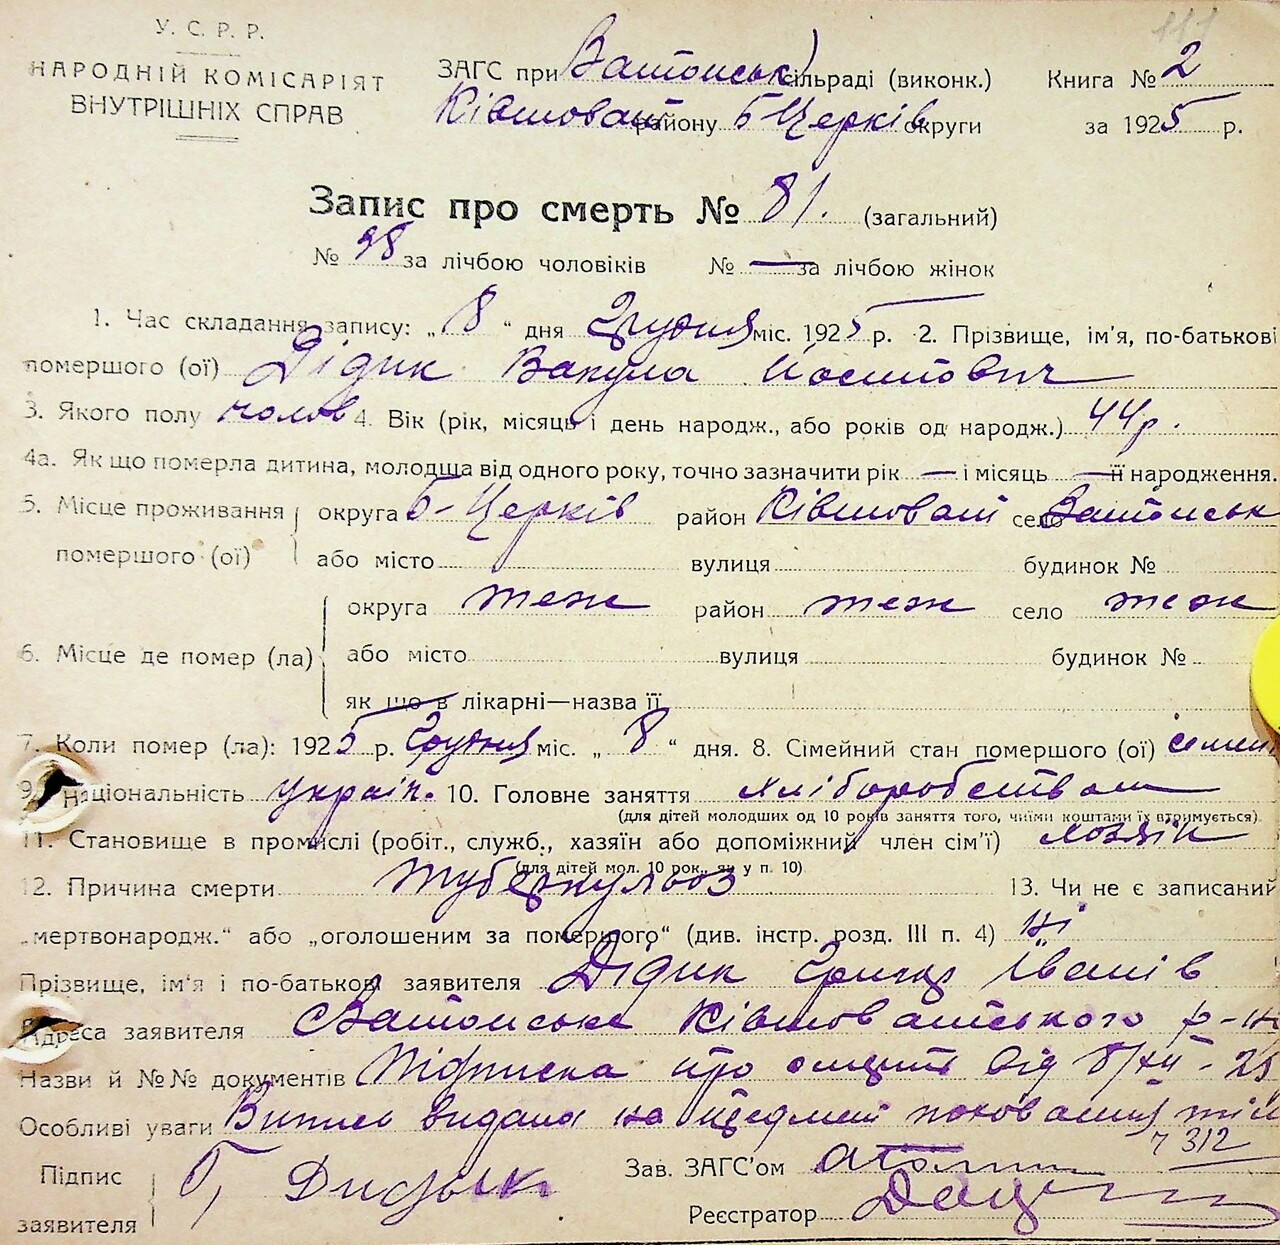 111
У. С. Р. Р.
НАРОДНІЙ КОМІСАРІЯТ
ВНУТРІШНІХ СПРАВ
ЗАГС при сільраді (виконк.) Книга № 2
Ківшоват району Б-Церків округи за 1925 р.
Запис про смерть № 81. (загальний)
№ 38 за лічбою чоловіків № — за лічбою жінок
1. Час складання запису: „ 8 “ дня Грудня міс. 1925 р. 2. Прізвище, ім'я, по-батькові
помершого (ої) Дідик Вакула Йосипович
3. Якого полу чолов 4. Вік (рік, місяць і день народж., або років од народж.) 44 р.
4а. Як що померла дитина, молодша від одного року, точно зазначити рік — і місяць — її народження.
5. Місце проживання округа Б-Церків район Ківшоват село
помершого (ої) або місто вулиця будинок №
округа теж район теж село теж
6. Місце де помер (ла) або місто вулиця будинок №
як що в лікарні—назва її
7. Коли помер (ла): 1925 р. Грудня міс. „ 8 “ дня. 8. Сімейний стан помершого (ої) семей
9. Національність україн. 10. Головне заняття хліборобством
(для дітей молодших од 10 років заняття того, чиїми коштами їх втримується).
11. Становище в промислі (робіт., служб., хазяїн або допоміжний член сім'ї) хозяїн
(для дітей мол. 10 рок., як у п. 10)
12. Причина смерти туберкульоз 13. Чи не є записаний
„мертвонародж.“ або „оголошеним за помершого“ (див. інстр. розд. III п. 4) ні
Прізвище, ім'я і по-батькові заявителя Дідик Грицз Іванів
Адреса заявителя Ківшоватського р-н
Назви й №№ документів Підписка про смерть від 8/XII - 25
Особливі уваги Випись видана на предмет поховання тіла
Ч 312
Підпис Г Дидык Зав. ЗАГС'ом
заявителя Реєстратор